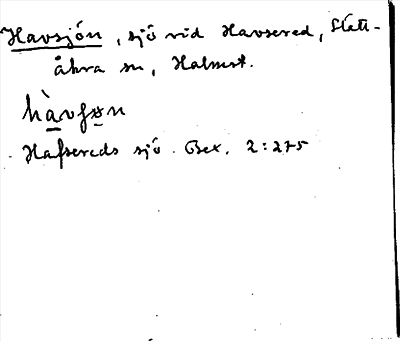 Havsjön, sjö vid Havsered, Slätt-
åkra sn, Halmst.
hàvſøn
Hafsereds sjö. Bex. 2:275